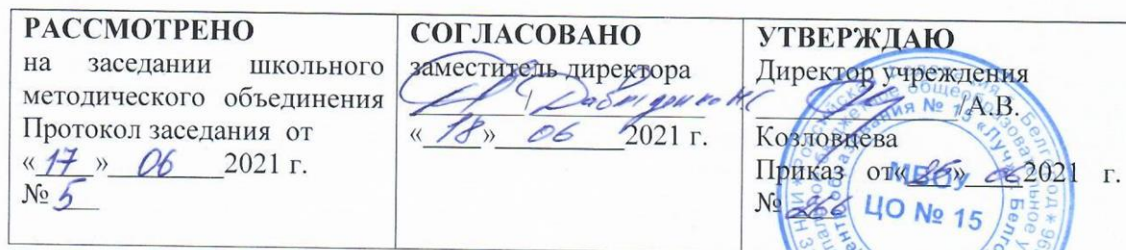 РАССМОТРЕНО
на заседании школьного
методического объединения
Протокол заседания от
« 17 » 06 2021 г.
№ 5
СОГЛАСОВАНО
заместитель директора
« 18 » 06 2021 г.
УТВЕРЖДАЮ
Директор учреждения
/А.В.
Козловцева
Приказ от« » 2021 г.
№
МБОУ
ЦО № 15